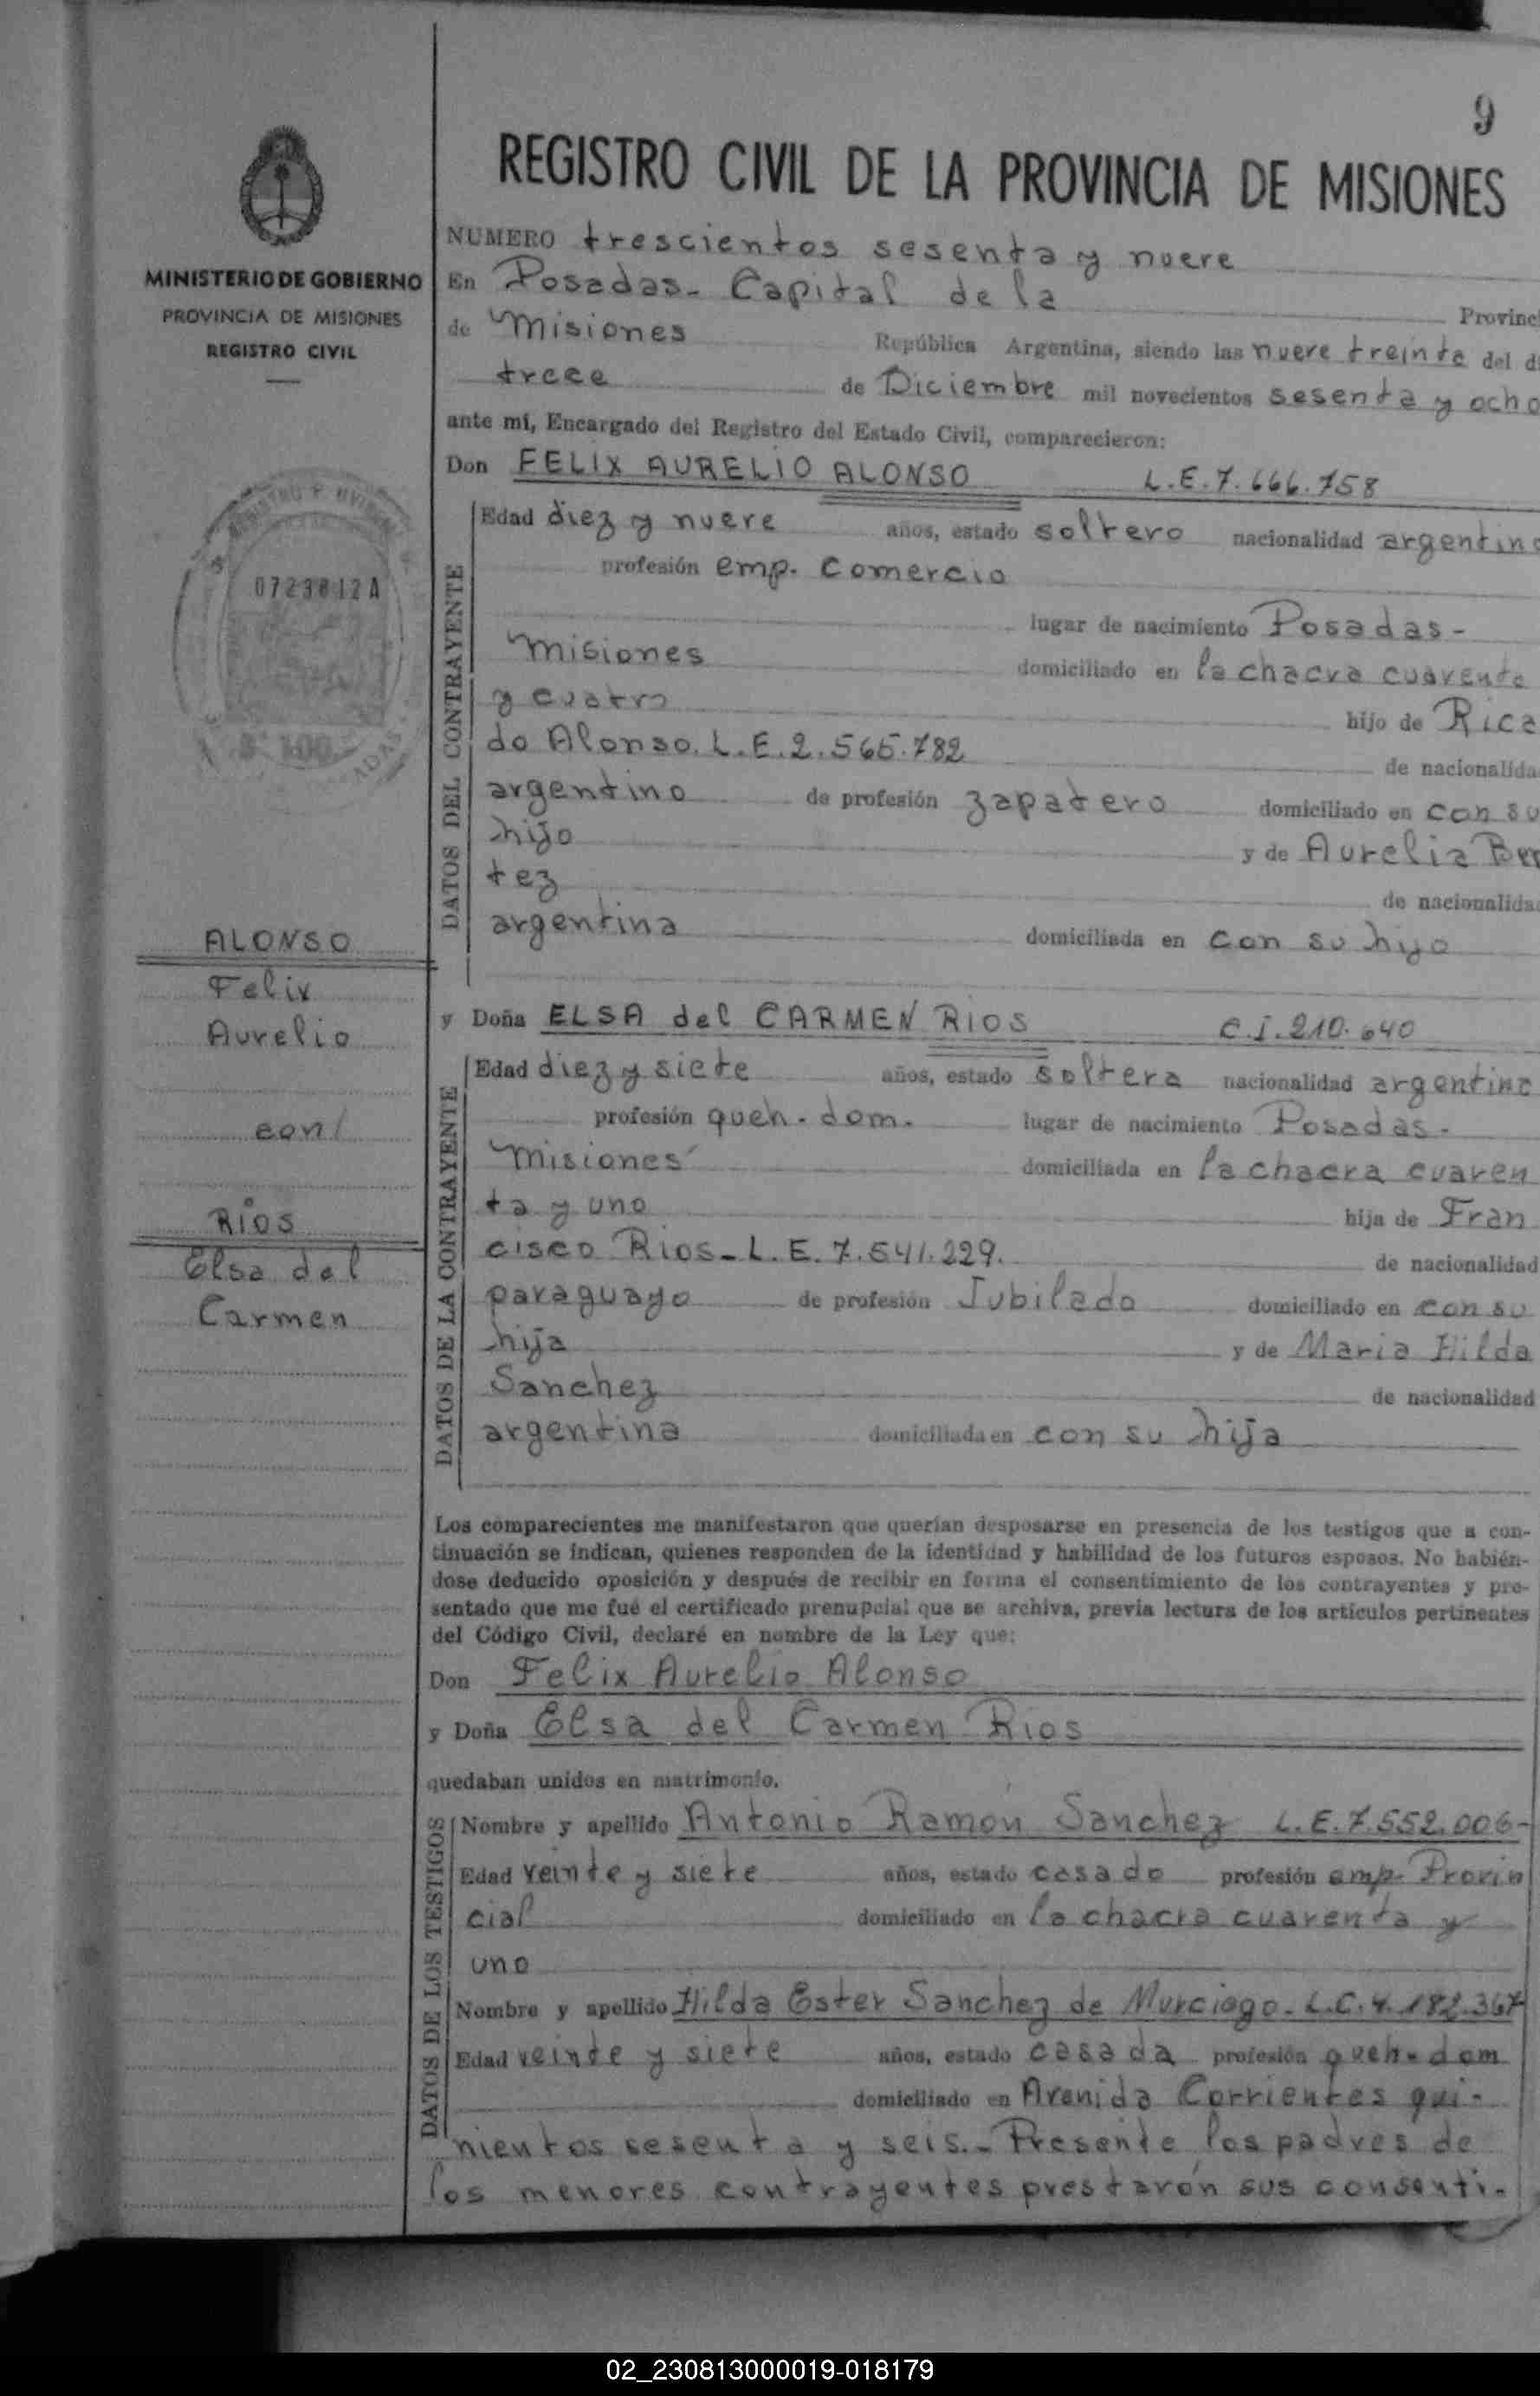 9
REGISTRO CIVIL DE LA PROVINCIA DE MISIONES
MINISTERIO DE GOBIERNO
PROVINCIA DE MISIONES
REGISTRO CIVIL
0723812A
ALONSO
Felix
Aurelio
con/
RIOS
Elsa del
Carmen
NUMERO trescientos sesenta y nueve
En Posadas- Capital de la Provinci
de Misiones República Argentina, siendo las nueve treinta del dí
trece de Diciembre mil novecientos sesenta y ocho
ante mí, Encargado del Registro del Estado Civil, comparecieron:
Don FELIX AURELIO ALONSO L.E. 7.666.758
DATOS DEL CONTRAYENTE
Edad diez y nueve años, estado soltero nacionalidad argentino
profesión emp. Comercio
lugar de nacimiento Posadas-
Misiones domiciliado en la chacra cuarenta
y cuatro hijo de Rica
do Alonso. L.E. 2.565.782 de nacionalida
argentino de profesión zapatero domiciliado en con su
hijo y de Aurelia Ber
tez de nacionalida
argentina domiciliada en con su hijo
y Doña ELSA del CARMEN RIOS C.I. 210.640
DATOS DE LA CONTRAYENTE
Edad diez y siete años, estado soltera nacionalidad argentina
profesión queh. dom. lugar de nacimiento Posadas-
Misiones domiciliada en la chacra cuaren
ta y uno hija de Fran
cisco Rios- L.E. 7.541.229. de nacionalidad
paraguayo de profesión Jubilado domiciliado en con su
hija y de Maria Hilda
Sanchez de nacionalidad
argentina domiciliada en con su hija
Los comparecientes me manifestaron que querían desposarse en presencia de los testigos que a con-
tinuación se indican, quienes responden de la identidad y habilidad de los futuros esposos. No habién-
dose deducido oposición y después de recibir en forma el consentimiento de los contrayentes y pre-
sentado que me fué el certificado prenupcial que se archiva, previa lectura de los artículos pertinentes
del Código Civil, declaré en nombre de la Ley que:
Don Felix Aurelio Alonso
y Doña Elsa del Carmen Rios
quedaban unidos en matrimonio.
DATOS DE LOS TESTIGOS
Nombre y apellido Antonio Ramón Sanchez L.E. 7.552.006-
Edad veinte y siete años, estado casado profesión emp- Provin
cial domiciliado en la chacra cuarenta y
uno
Nombre y apellido Hilda Ester Sanchez de Murciego- L.C. 4.182.367
Edad veinte y siete años, estado casada profesión queh-dom
domiciliado en Avenida Corrientes qui-
nientos sesenta y seis.- Presente los padres de
los menores contrayentes prestarón sus consenti-
02_230813000019-018179